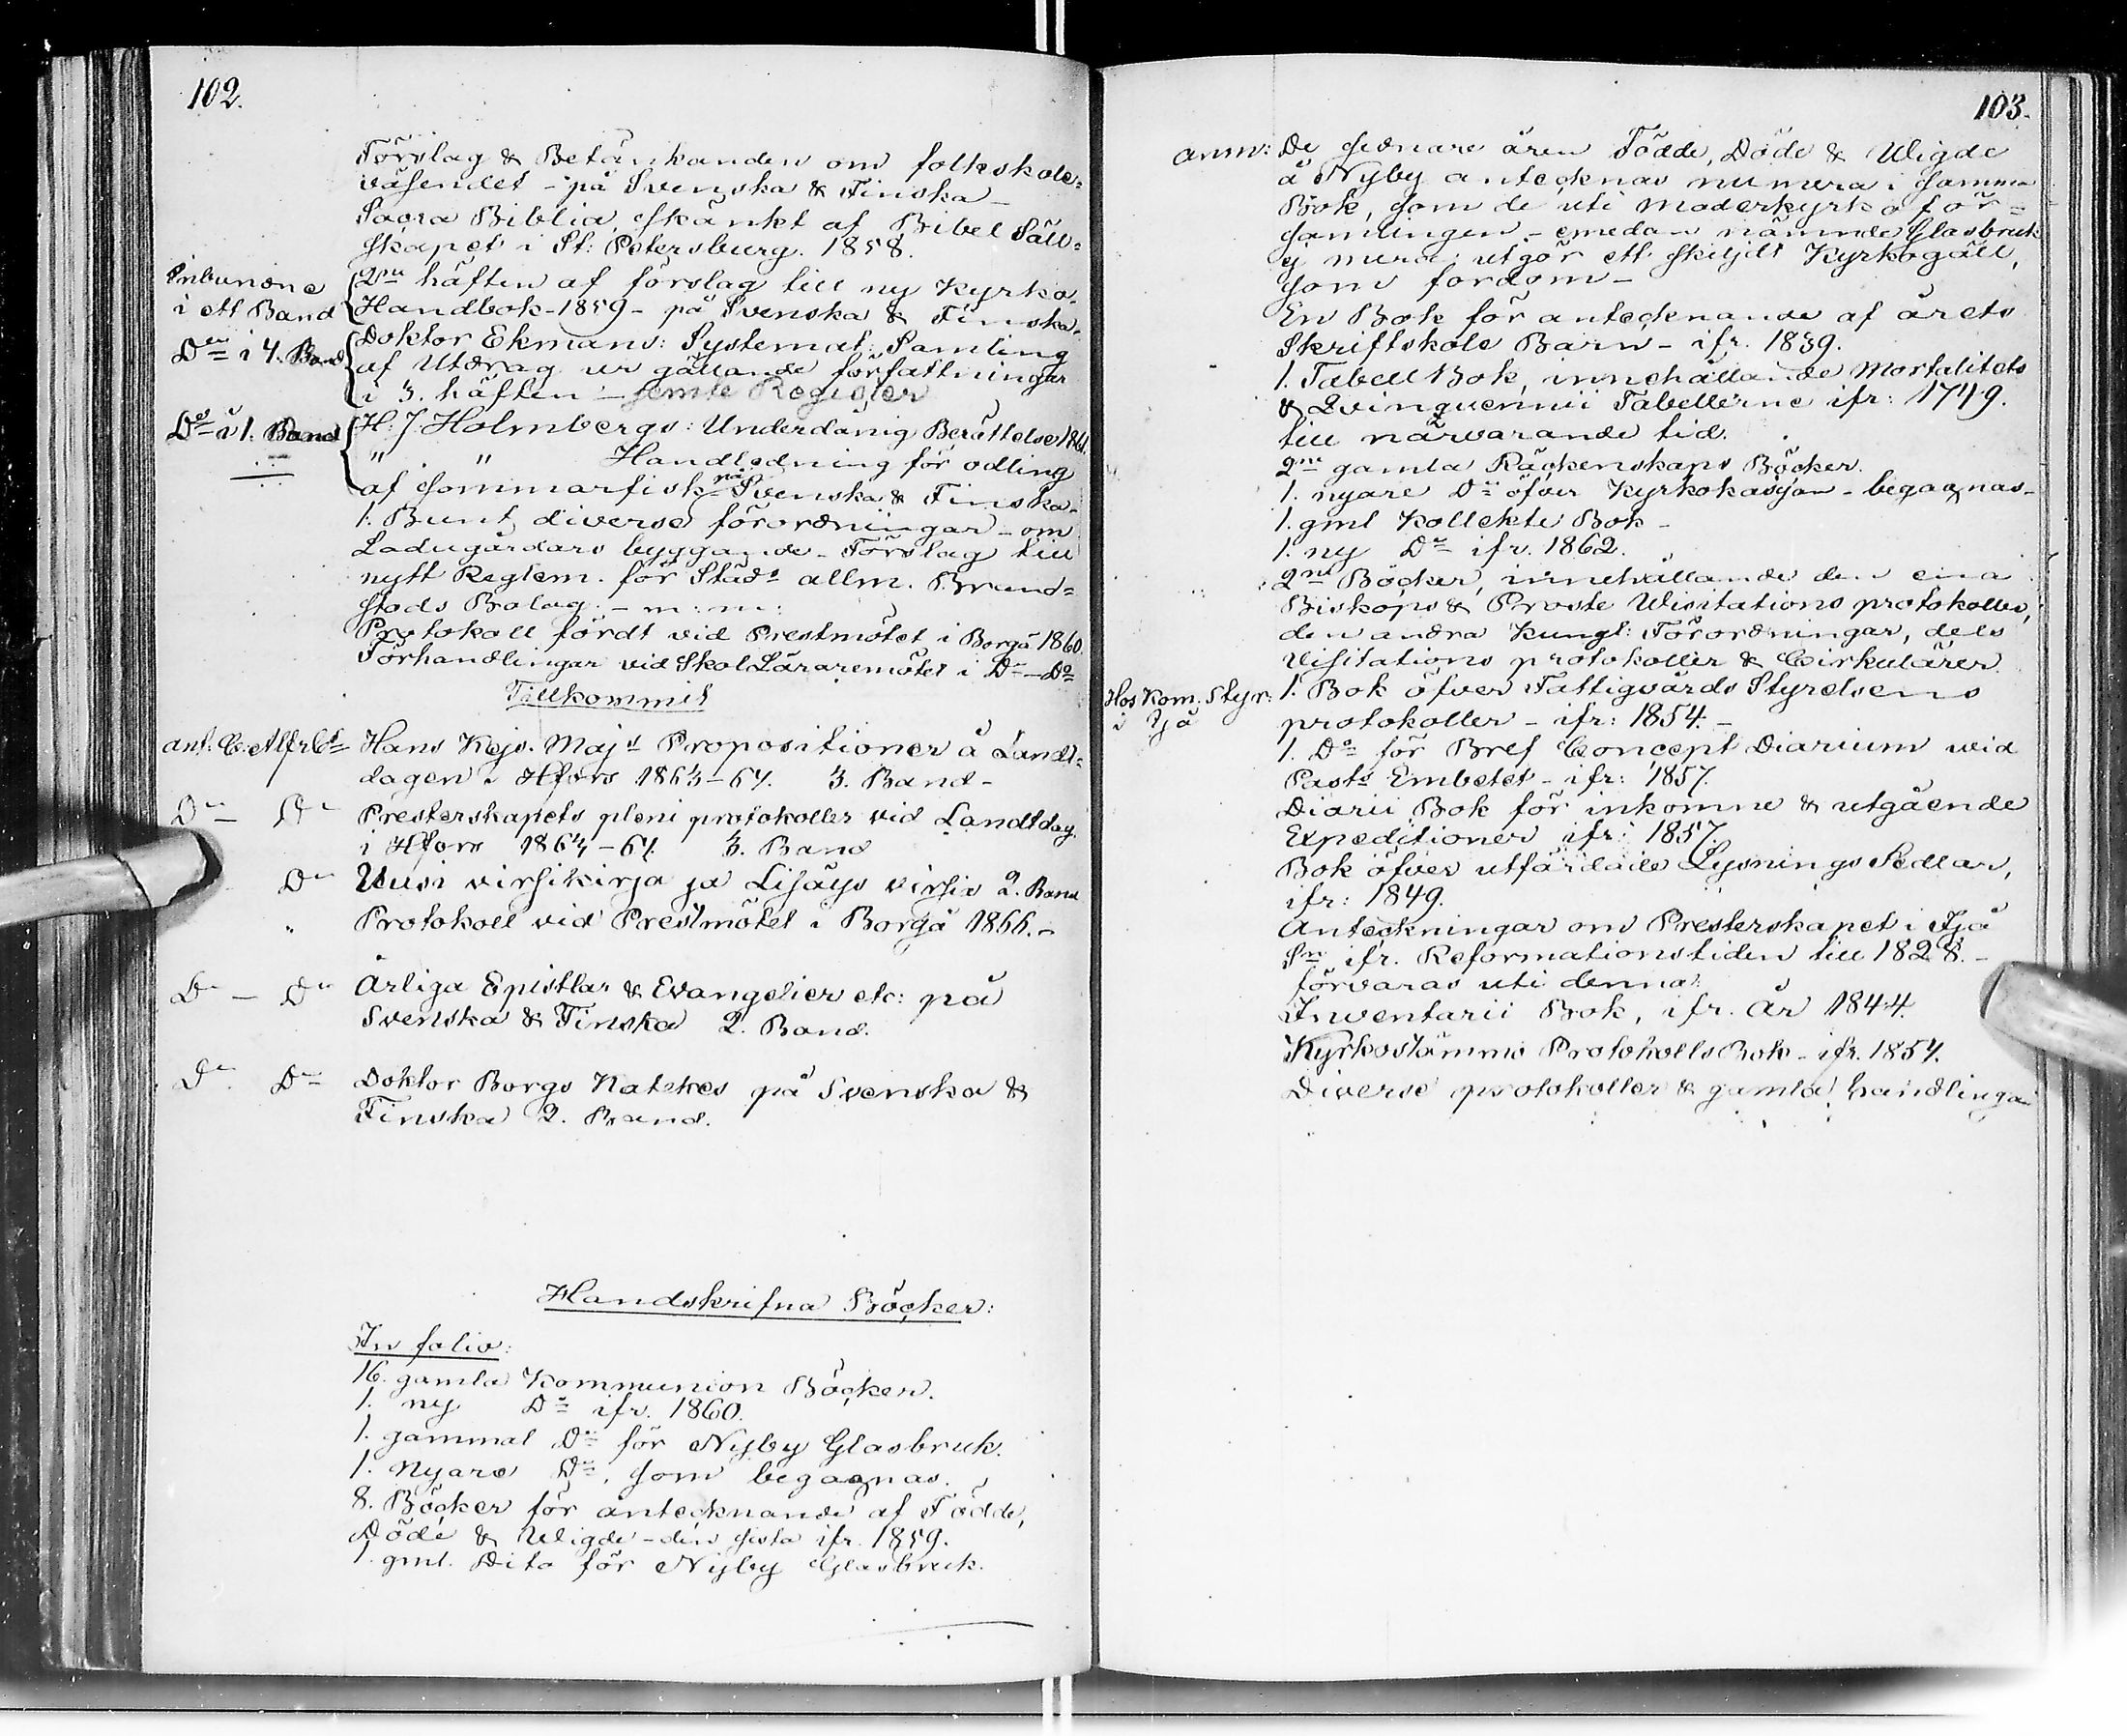 102.
Förslag & Betänkanden om folkskole=
väsendet - på Svenska & Finska -
Sacra Biblia, skänkt af Bibel Säll=
skapet i St: Petersburg. 1858.
Inbundne
i ett Band
2ne häften af förslag till ny Kyrko-
Handbok - 1859 - på Svenska & Finska.
Do i 4. Band
Doktor Ekmans: Systemat: Samling
af Utdrag ur gällande författningar
i 3. häften - jemte Register
Do i 1. Band
H. J. Holmbergs: Underdånig Berättelse 1861.
" " Handledning för odling
af sommarfisk - på Svenska & Finska.
1. Bunt, diverse förordningar - om
Ladugårdars byggande - Förslag till
nytt Reglem. för Städs allm. Brand=
stods Bolag. - m: m:
Protokoll fördt vid Prestmötet i Borgå 1860.
Förhandlingar vid SkolLäraremötet i Do - Do
Tillkommit
Hans Kejs. Majs Propositioner å Landt=
dagen i Hfors 1863-64. 3. Band -
Do - Do Presterskapets pleni protokoller vid Landtdag.
i Hfors 1863-64. 3. Band
Do Uusi virsikirja ja Lisäys virsiä 2. Band
" Protokoll vid Prestmötet i Borgå 1866. -
Do - Do Årliga Epistlar & Evangelier etc: på
Svenska & Finska 2. Band.
Do Do Doktor Borgs Katekes på Svenska &
Finska 2. Band.
Handskrifna Böcker:
In folio:
16. gamla Kommunion Böcker.
1. ny Do ifr. 1860.
1. gammal Do för Nyby Glasbruk.
1. Nyare Do, som begagnas.
8. Böcker för antecknande af Födde,
Döde & Wigde - den sista ifr. 1859.
1. gml. Dito för Nyby Glasbruk.
103.
anm: De sednare åren Födde, Döde & Wigde
å Nyby antecknas numera i samma
Bok, som de uti moderkyrko för=
samlingen - emedan nämnde Glasbruk
ej mera utgör ett skiljdt Kyrkogäll,
som fordom -
En Bok för antecknande af årets
Skriftskole Barn - ifr. 1839.
1. Tabell Bok, innehållande Mortalitets
& Qvinquennii Tabellerne ifr: 1749.
till närvarande tid.
2ne gamla Räckenskaps Böcker.
1. nyare Do öfver Kyrkokassan - begagnas -
1. gml Kollekte Bok -
1. ny Do ifr. 1862.
2ne Böcker, innehållande den ena
Biskops & Proste Wisitations protokoller,
den andra Kungl: Förordningar, dels
Visitations protokoller & Cirkulärer.
Hos Kom. Styr:
i Ijå
1. Bok öfver Fattigvårds Styrelsens
protokoller - ifr: 1854. -
1. Do för Bref Concept Diarium vid
Pasts Embetet - ifr: 1857.
Diarii Bok för inkomne & utgående
Expeditioner ifr: 1857.
Bok öfver utfärdade Lysnings Sedlar,
ifr: 1849.
Anteckningar om Presterskapet i Ijå
Sn ifr. Reformationstiden till 1828. -
förvaras uti denna:
Inventarii Bok, ifr. år 1844.
Kyrkostämmo Protokolls Bok - ifr. 1854.
Diverse protokoller & gamla handlingar